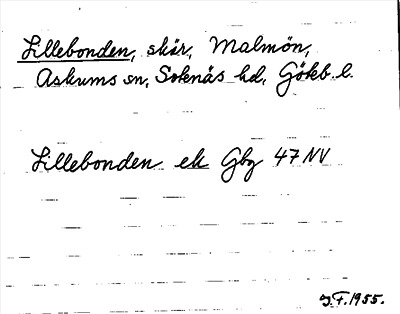 Lillebonden, skär, Malmön,
Askums sn, Sotenäs hd, Götebl.
Lillebonden ek Gbg 47 NV
J.F. 1955.